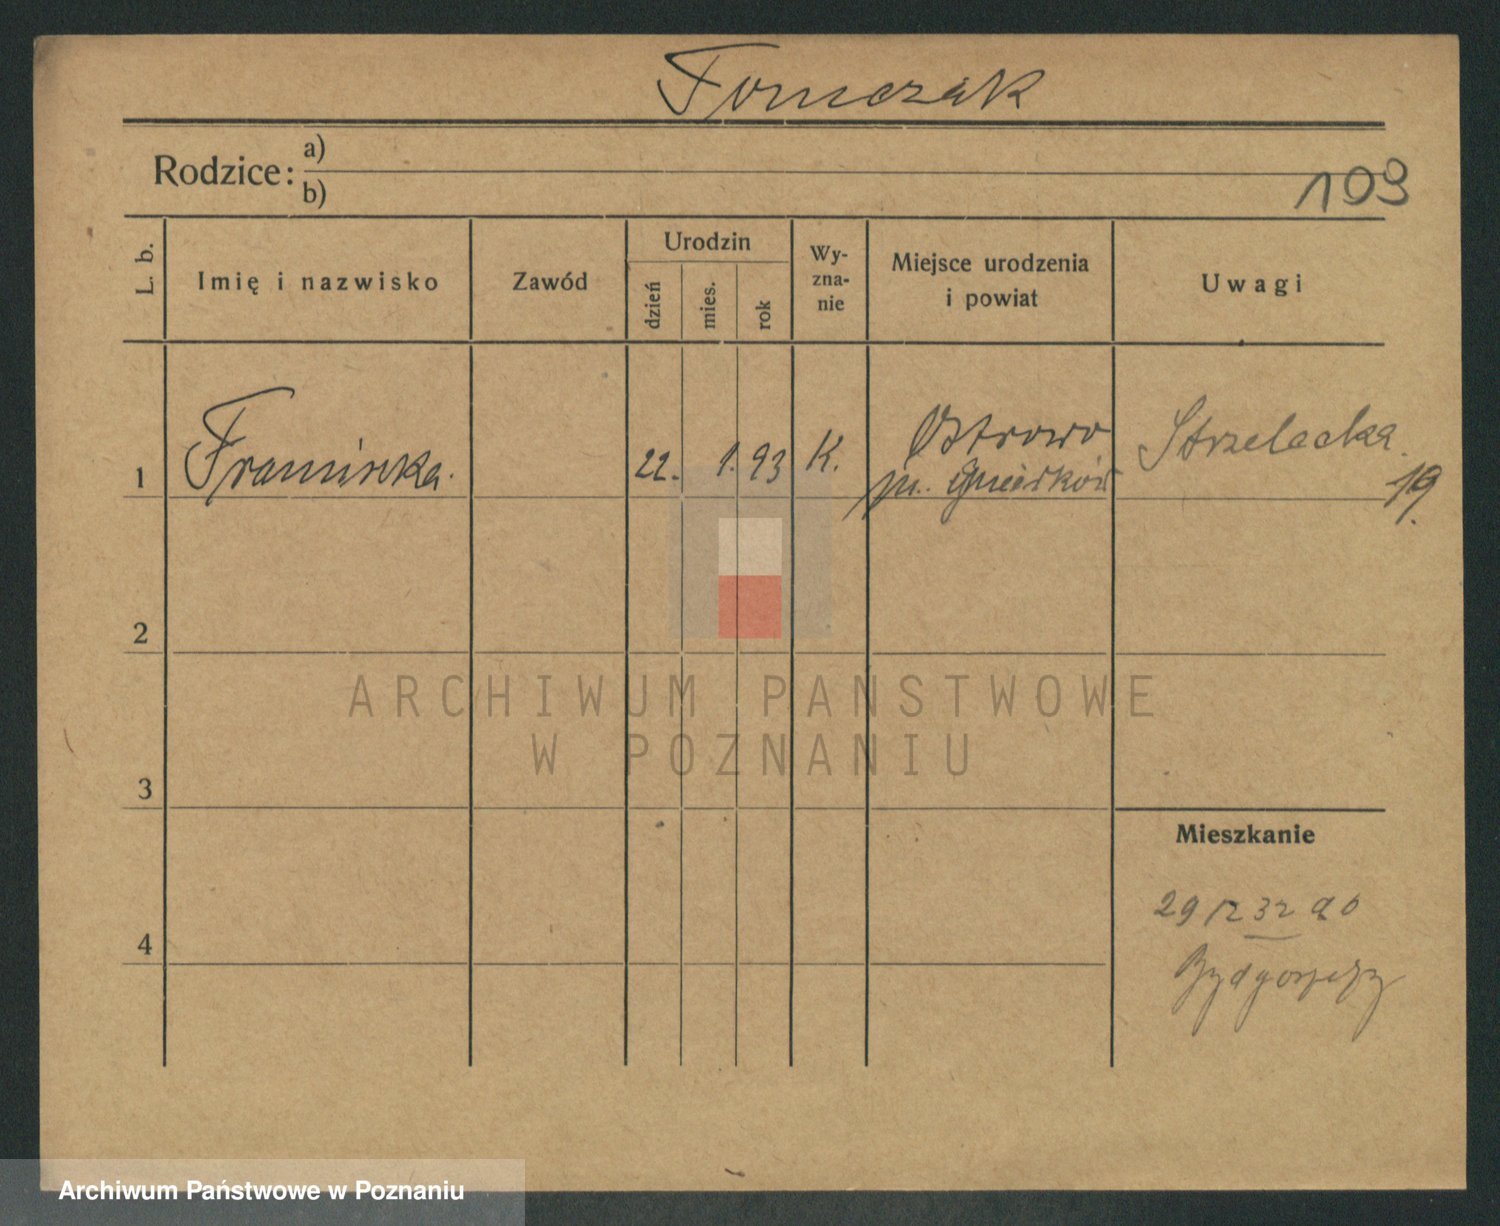 Tomczak
Rodzice: a)
b)
109
L. b.
Imię i nazwisko
Zawód
Urodzin
dzień
mies.
rok
Wy-
zna-
nie
Miejsce urodzenia
i powiat
Uwagi
1
Franciszka.
22. 1. 93
K.
Ostrowo
Strzelecka
19.
2
3
4
Mieszkanie
29 12 32 do
Bydgoszczy
ARCHIWUM PANSTWOWE
W POZNANIU
Archiwum Państwowe w Poznaniu